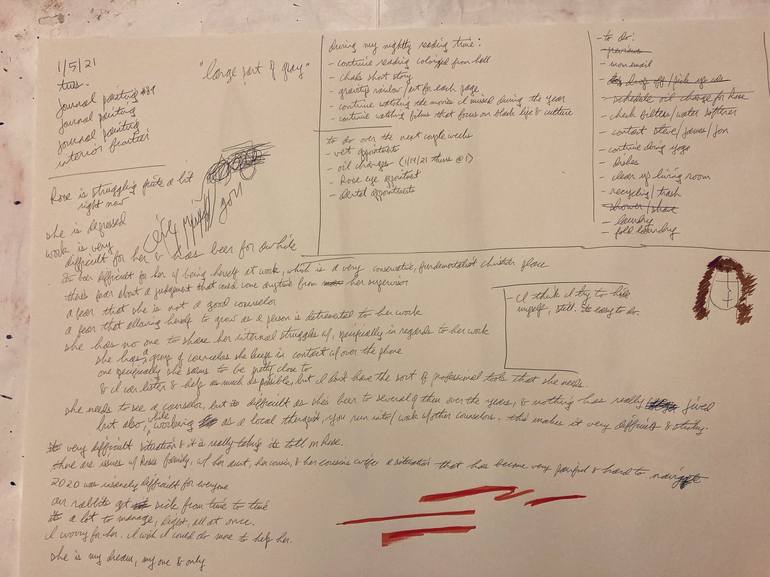 1/5/21
tues.
journal painting #89
journal painting
journal painting
interior
"large part of gray"
during my nightly reading time:
- continue reading colonized from hell
- chaks short story
- gravity's rainbow/art for each page
- continue watching the movies I missed during the year
- continue watching films that focus on black life & culture
to do over the next couple weeks
- vet appointments
- oil changes (1/14/21 thurs @1)
- Rose eye appointment
- dental appointments
- to do:
- mom email
- drop off/pick up
- schedule oil change for Rose
- check filter/water softener
- contact steve/james/jon
- continue doing yoga
- dishes
- clean up living room
- recycling/trash
- shower/shave
- laundry
- fold laundry
Rose is struggling quite a lot
right now
she is depressed
work is very
difficult for her & has been for awhile
been difficult for her w/ being herself at work, which is a very conservative, fundamentalist christian place
there's fear about a judgment that could come anytime from her supervisor
a fear that she is not a good counselor
a fear that allowing herself to grow as a person is detrimental to her work
she has no one to share her internal struggles w/, specifically in regards to her work
she has a group of counselors she keeps in contact w/ over the phone
one specifically she seems to be pretty close to
& I can listen & help as much as possible, but I don't have the sort of professional tools that she needs
- I think I try to hide
myself, still. Its easy to do.
she needs to see a counselor, but its difficult as she's been to several of them over the years, & nothing has really jived
but also, while working as a local therapist, you run into/work w/ other counselors. this makes it very difficult & sticky.
Its very difficult situation & it is really taking its toll on Rose.
there are issues w/ Rose's family, w/ her aunt, her cousin, & her cousin's wife, a situation that has become very painful & hard to navigate
2020 was insanely difficult for everyone
our rabbits get sick from time to time
Its a lot to manage, right, all at once.
I worry for her. I wish I could do more to help her.
she is my dream, my one & only